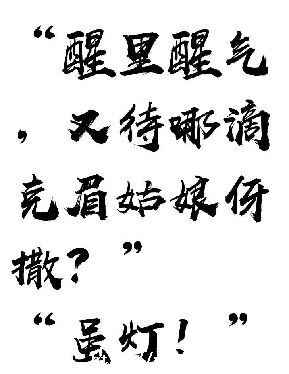 “醒里醒气
，又待哪滴
克眉姑娘伢
撒？”
“虽灯！”